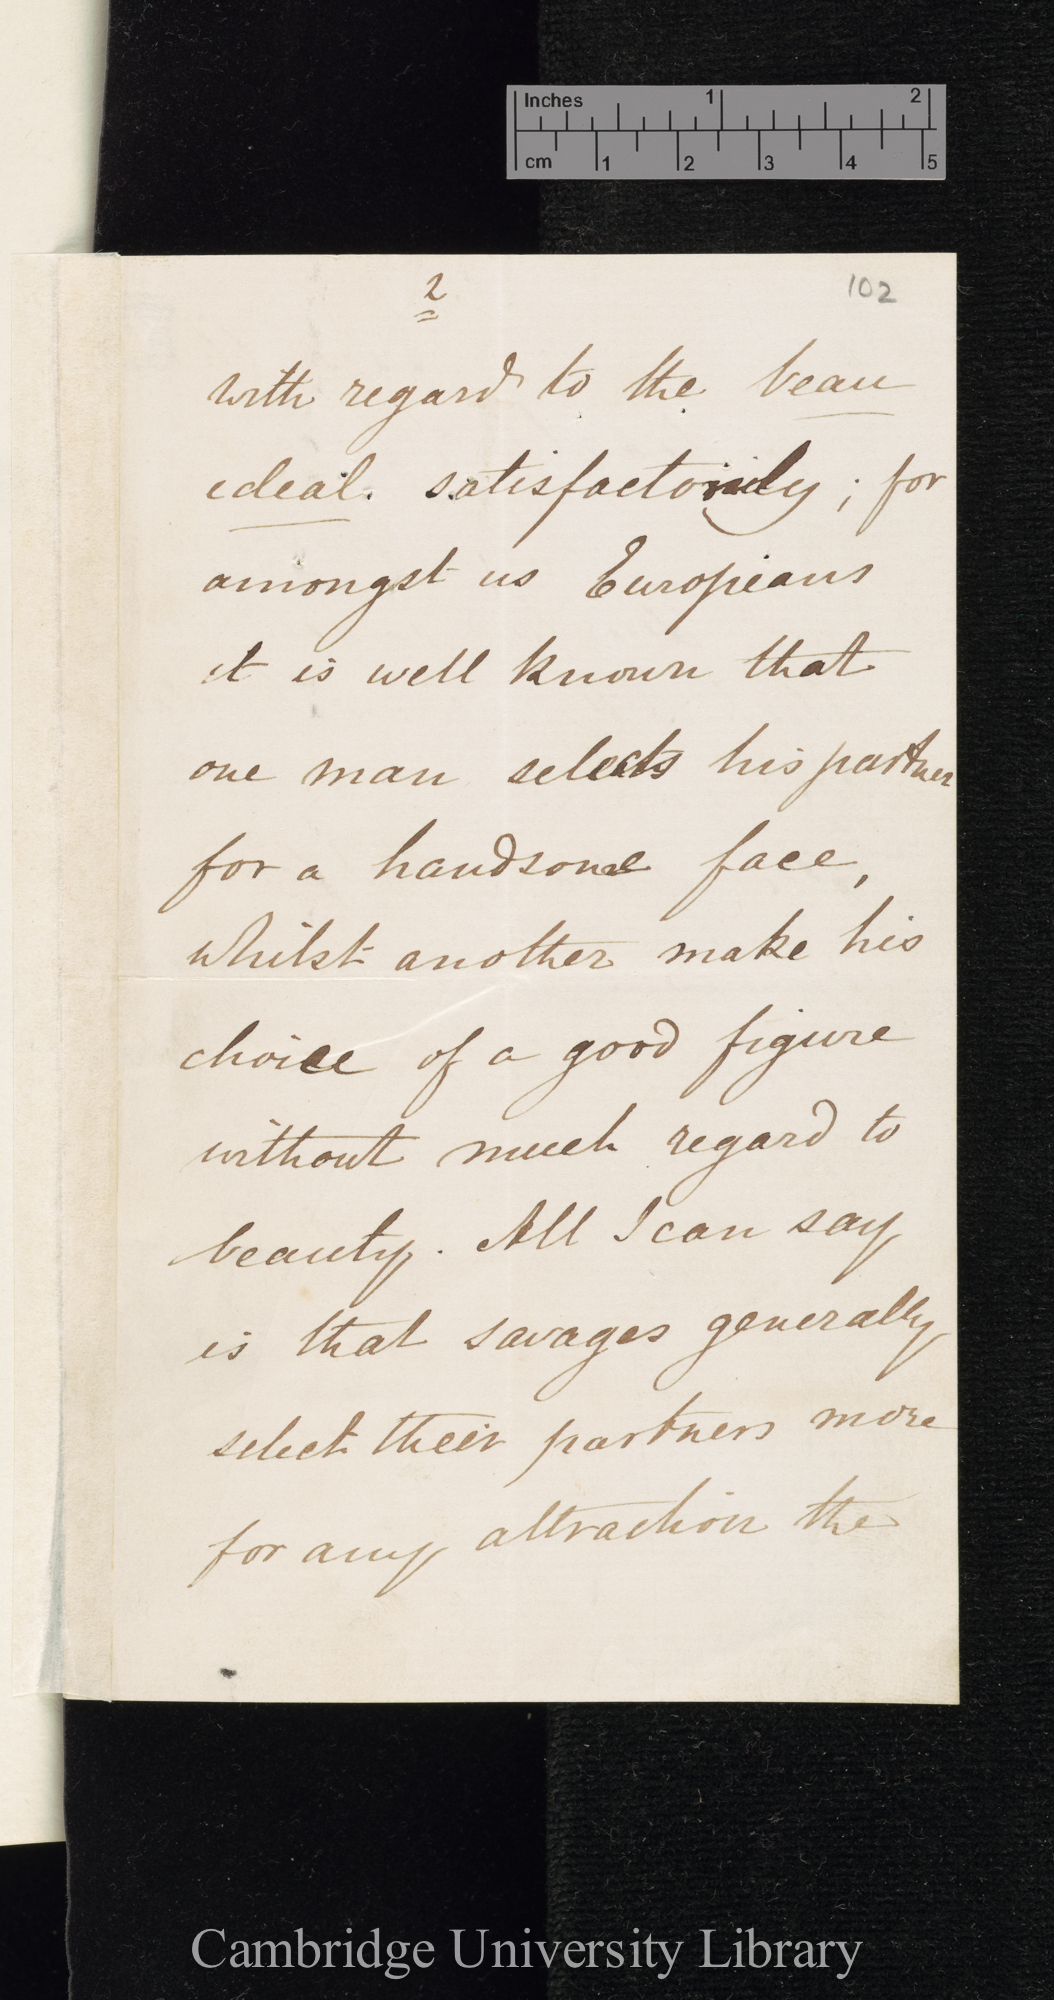 Inches 1 2
cm 1 2 3 4 5
2 102
with regard to the beau
ideal. satisfactorily; for
amongst us Europeans
it is well known that
one man selects his partner
for a handsome face,
whilst another make his
choice of a good figure
without much regard to
beauty. All I can say
is that savages generally
select their partners more
for any attraction the
Cambridge University Library